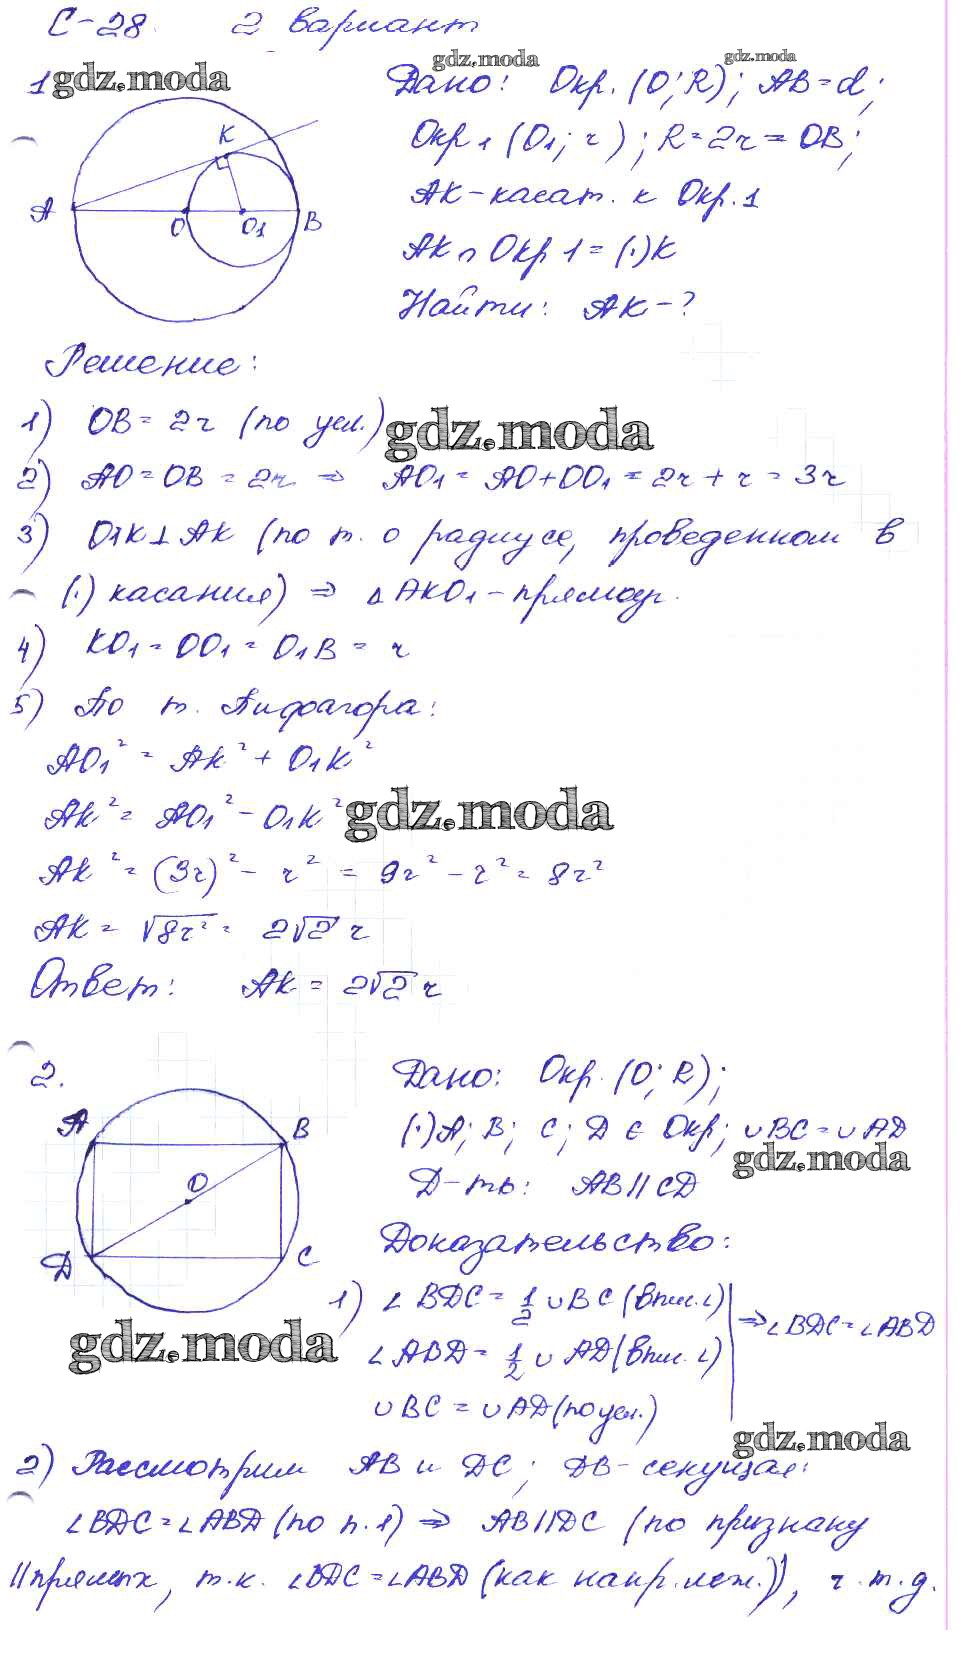 С-28. 2 вариант
1 gdz.moda
gdz.moda
gdz.moda
Дано: Окр. (O; R); AB = d;
Окр 1 (O1; r); R = 2r = OB;
AK - касат. к Окр. 1
AK ∩ Окр 1 = (·) K
Найти: AK - ?
K
A
O
O1
B
Решение:
1) OB = 2r (по усл.)
gdz.moda
2) AO = OB = 2r ⇒ AO1 = AO + OO1 = 2r + r = 3r
3) O1K ⊥ AK (по т. о радиусе, проведенном в
(·) касания) ⇒ △ AKO1 - прямоуг.
4) KO1 = OO1 = O1B = r
5) По т. Пифагора:
AO1² = AK² + O1K²
AK² = AO1² - O1K²
gdz.moda
AK² = (3r)² - r² = 9r² - r² = 8r²
AK = √8r² = 2√2 r
Ответ: AK = 2√2 r
2.
Дано: Окр. (O; R);
(·) A; B; C; D ∈ Окр; ∪ BC = ∪ AD
gdz.moda
Д-ть: AB || CD
A
B
O
D
C
Доказательство:
1) ∠ BDC = 1/2 ∪ BC (впис. ∠)
∠ ABD = 1/2 ∪ AD (впис. ∠)
∪ BC = ∪ AD (по усл.)
⇒ ∠ BDC = ∠ ABD
gdz.moda
gdz.moda
2) Рассмотрим AB и DC; DB - секущая:
∠ BDC = ∠ ABD (по п. 1) ⇒ AB || DC (по признаку
|| прямых, т.к. ∠ BDC = ∠ ABD (как накр. леж.)), ч.т.д.